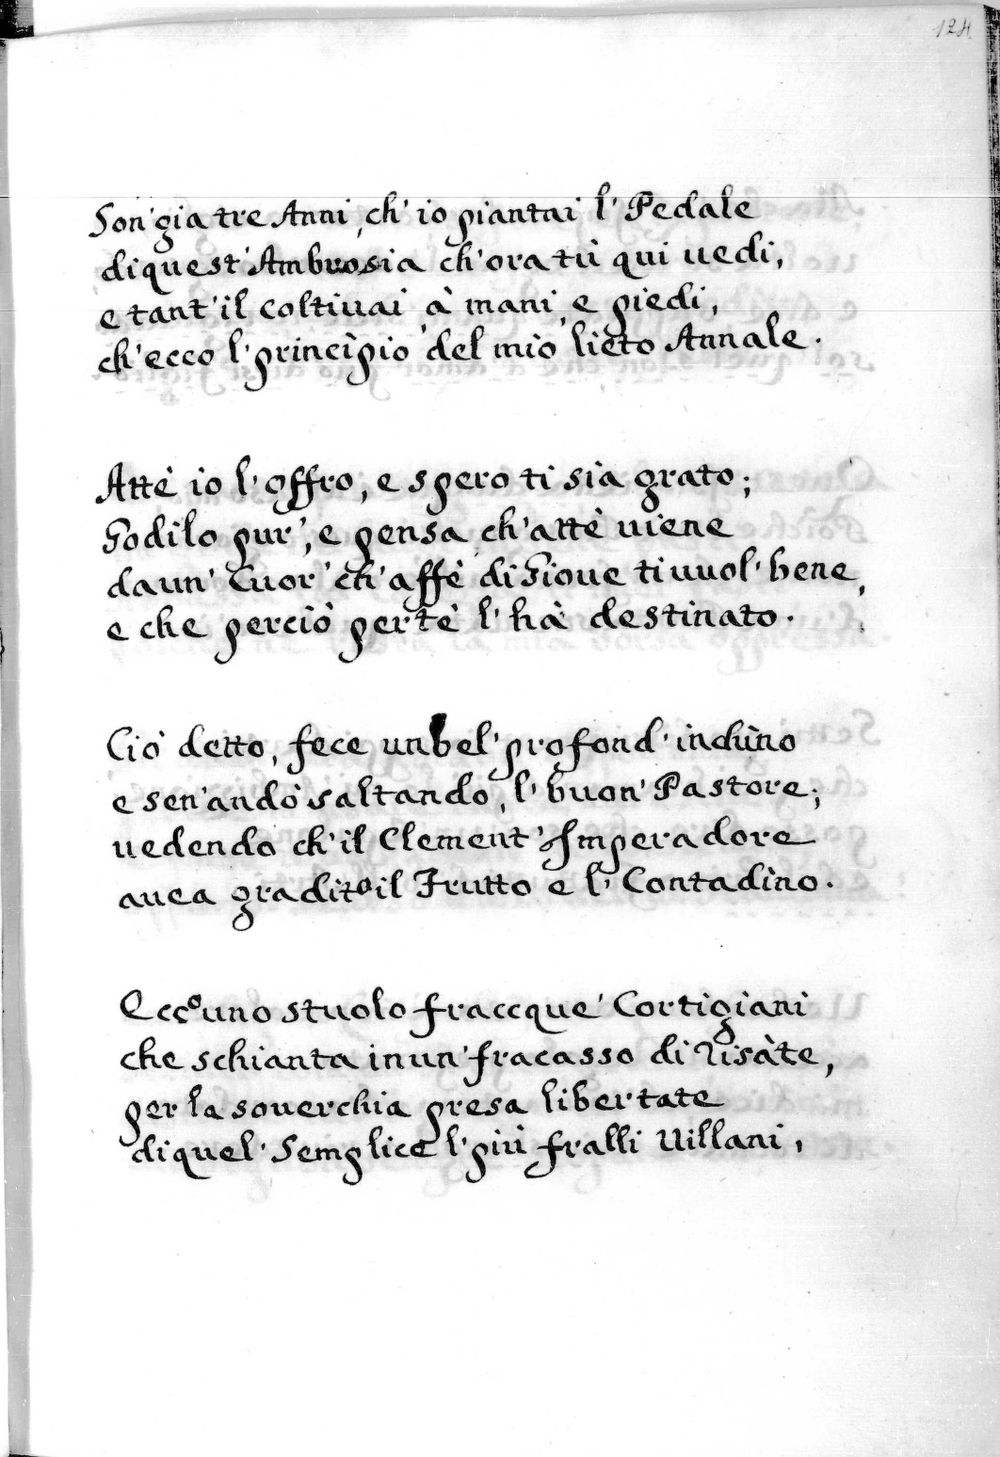 124
Son' gia tre Anni, ch' io piantai l' Pedale
di quest' Ambrosia ch' ora tù qui uedi,
e tant' il coltiuai à mani, e piedi,
ch' ecco l' principio del mio lieto Annale.
Attè io l' offro, e spero ti sia grato;
Godilo pur', e pensa ch' attè uiene
da un' Cuor' ch' affè di Gioue ti uuol' bene,
e che perciò per tè l' hà destinato.
Ciò detto, fece un bel' profond' inchino
e sen' andò saltando, l' buon' Pastore;
uedendo ch' il Clement' Imperadore
auea gradito il Frutto e l' Contadino.
Ecco uno stuolo fraccque' Cortigiani
che schianta in un' fracasso di risàte,
per la souerchia presa libertate
di quel' Semplice l' più fralli Uillani,